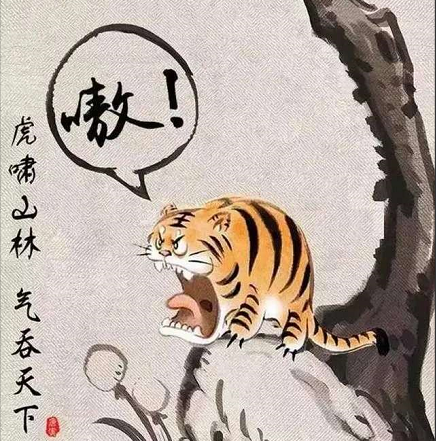 嗷！
虎啸山林 气吞天下